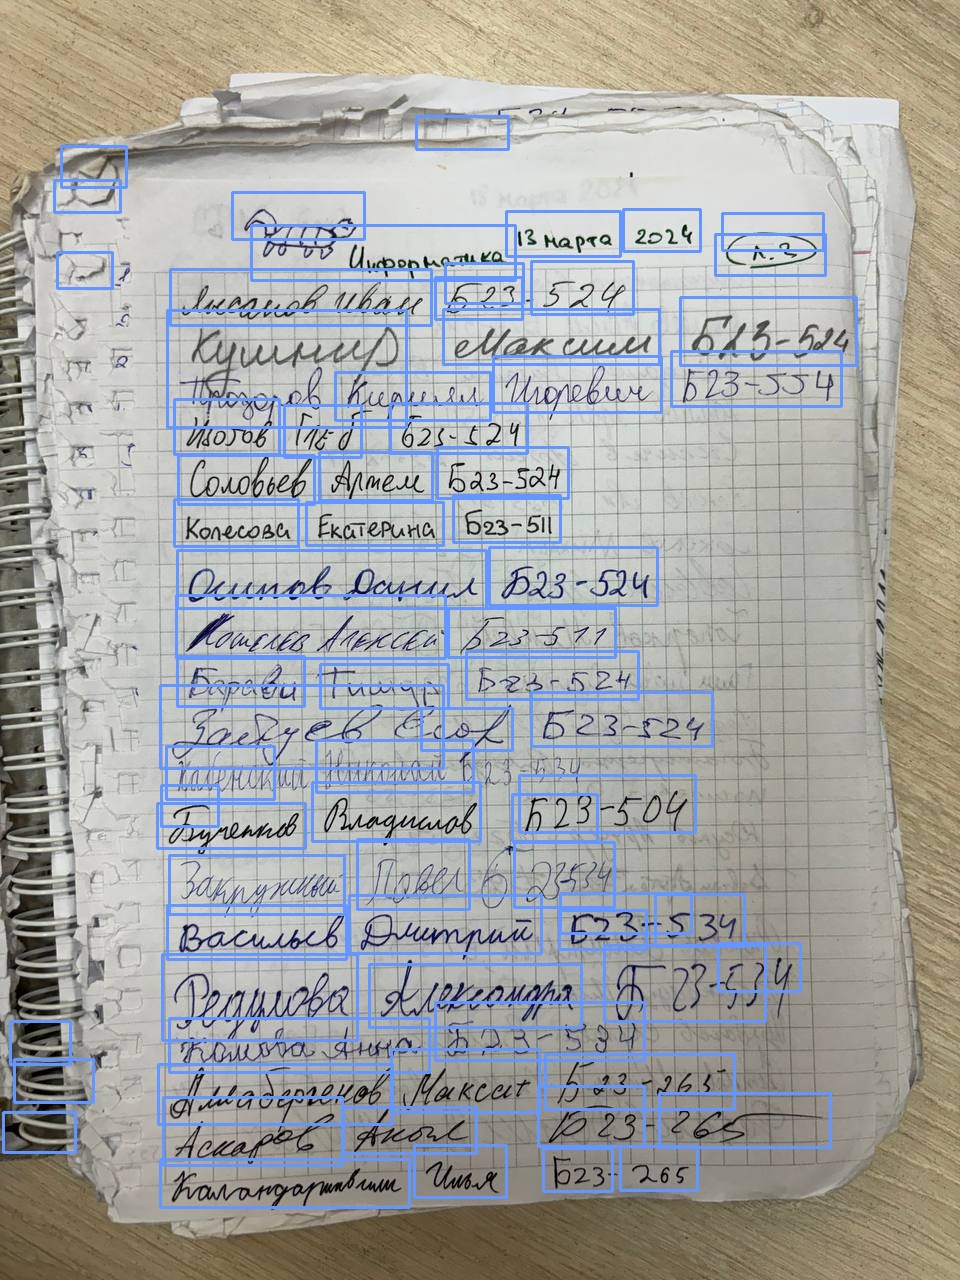 Информатика 13 марта 2024
л. 2
Иван Б23-524
Кушнир Максим Б23-524
Прозоров Кирилл Игоревич Б23-554
Изотов Глеб Б23-524
Соловьев Артем Б23-524
Колесова Екатерина Б23-511
Осипов Данил Б23-524
Кошелев Алексей Б23-511
Тимур Б23-524
Егор Б23-524
Николай Б23-534
Бученков Владислав Б23-504
Закружный Павел Б23-534
Васильев Дмитрий Б23-534
Александра Б23-534
Комова Анна Б23-534
Алмабергенов Максат Б23-265
Аскаров Акыл Б23-265
Каландаришвили Илья Б23-265